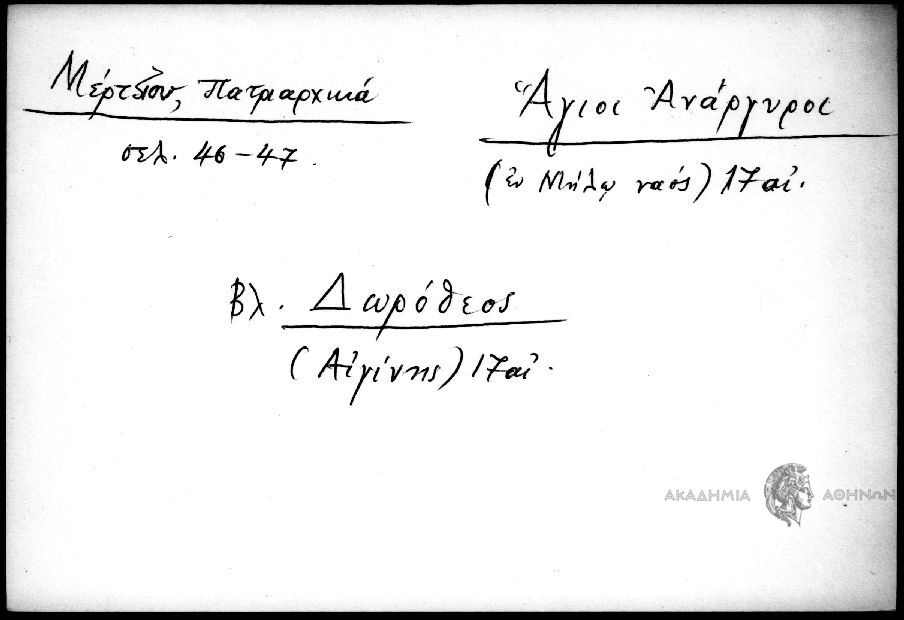 Μέρτζιου, Πατριαρχικά
σελ. 46-47.
Ἅγιοι Ἀνάργυροι
(ἐν Μήλῳ ναός) 17 αἰ.
Βλ. Δωρόθεος
(Αἰγίνης) 17 αἰ.
ΑΚΑΔΗΜΙΑ ΑΘΗΝΩΝ